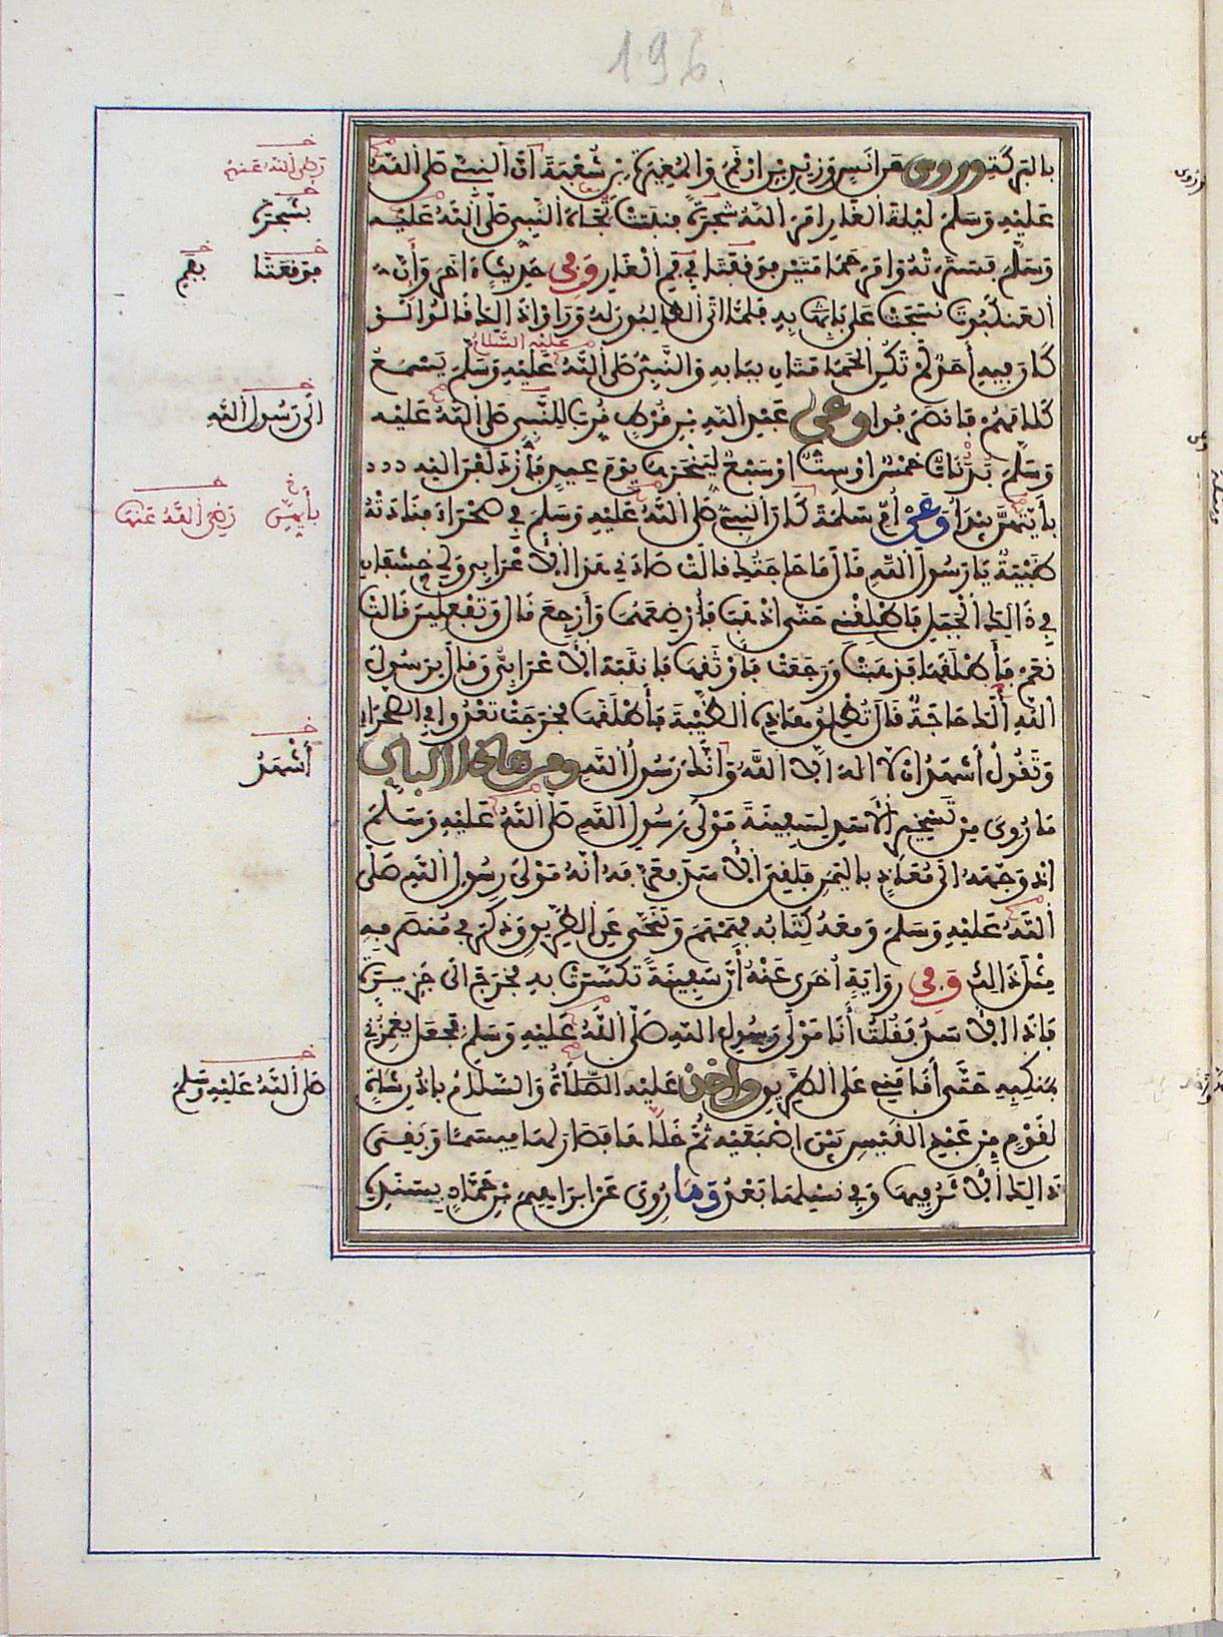 196
بالبركة وروي عن انس وزيد بن ارقم والمغيرة بن شعبة ان النبي صلى الله
عليه وسلم ليلة الغار امر الله شجرة فنبتت تجاه النبي صلى الله عليه
وسلم فسترته وامر حمامتين فوقفتا في فم الغار وفي حديث اخر وان
العنكبوت نسجت على بابه فلما اتى الطالبون له ورأوا ذالك قالوا لو
كان فيه أحد لم تكن الحمامتان ببابه والنبي صلى الله عليه وسلم يسمع
عليه السلام
كلامهم فانصرفوا وعن عبد الله بن قرط قرب للنبي صلى الله عليه
وسلم بدنات خمس او ست او سبع لينحرها يوم عيد فازدلفن اليه
بأيتهن يبدأ وعن أم سلمة كان النبي صلى الله عليه وسلم في صحراء فنادته
ظبية يا رسول الله قال ما حاجتك قالت صادني هذا الأعرابي ولي خشفان
في ذالك الجبل فاطلقني حتى اذهب فأرضعهما وأرجع قال وتفعلين قالت
نعم فأطلقها فذهبت ورجعت فأوثقها فانتبه الأعرابي وقال يرسول
الله ألك حاجة قال تطلق هاذه الظبية فأطلقها فخرجت تعدوا في الصحراء
وتقول أشهد ان لا اله الا الله وانك رسول الله ومن هاذا الباب
ما روي من تسخير الأسد لسفينة مولى رسول الله صلى الله عليه وسلم
اذ وجهه الى معاذ باليمن فلقي الأسد فعرفه انه مولى رسول الله صلى
الله عليه وسلم ومعه كتابه فهمهم وتنحى عن الطريق وذكر في منصرفه
مثل ذالك وفي رواية أخرى عنه أن سفينة تكسرت به فخرج الى جزيرة
فاذا الأسد فقلت أنا مولى رسول الله صلى الله عليه وسلم فجعل يغمزني
بمنكبه حتى أقامني على الطريق واخذ عليه الصلاة والسلام باذن شاة
لقوم من عبد القيس بين اصبعيه ثم خلاها فصار لها ميسما وبقي
ذالك الأثر فيها وفي نسلها بعد وما روي عن ابراهيم بن حماد بسنده
رضي الله عنهم
بشجرة
فوقفتا بفم
الى رسول الله
بأيهن رضي الله عنها
أشهد
صلى الله عليه وسلم